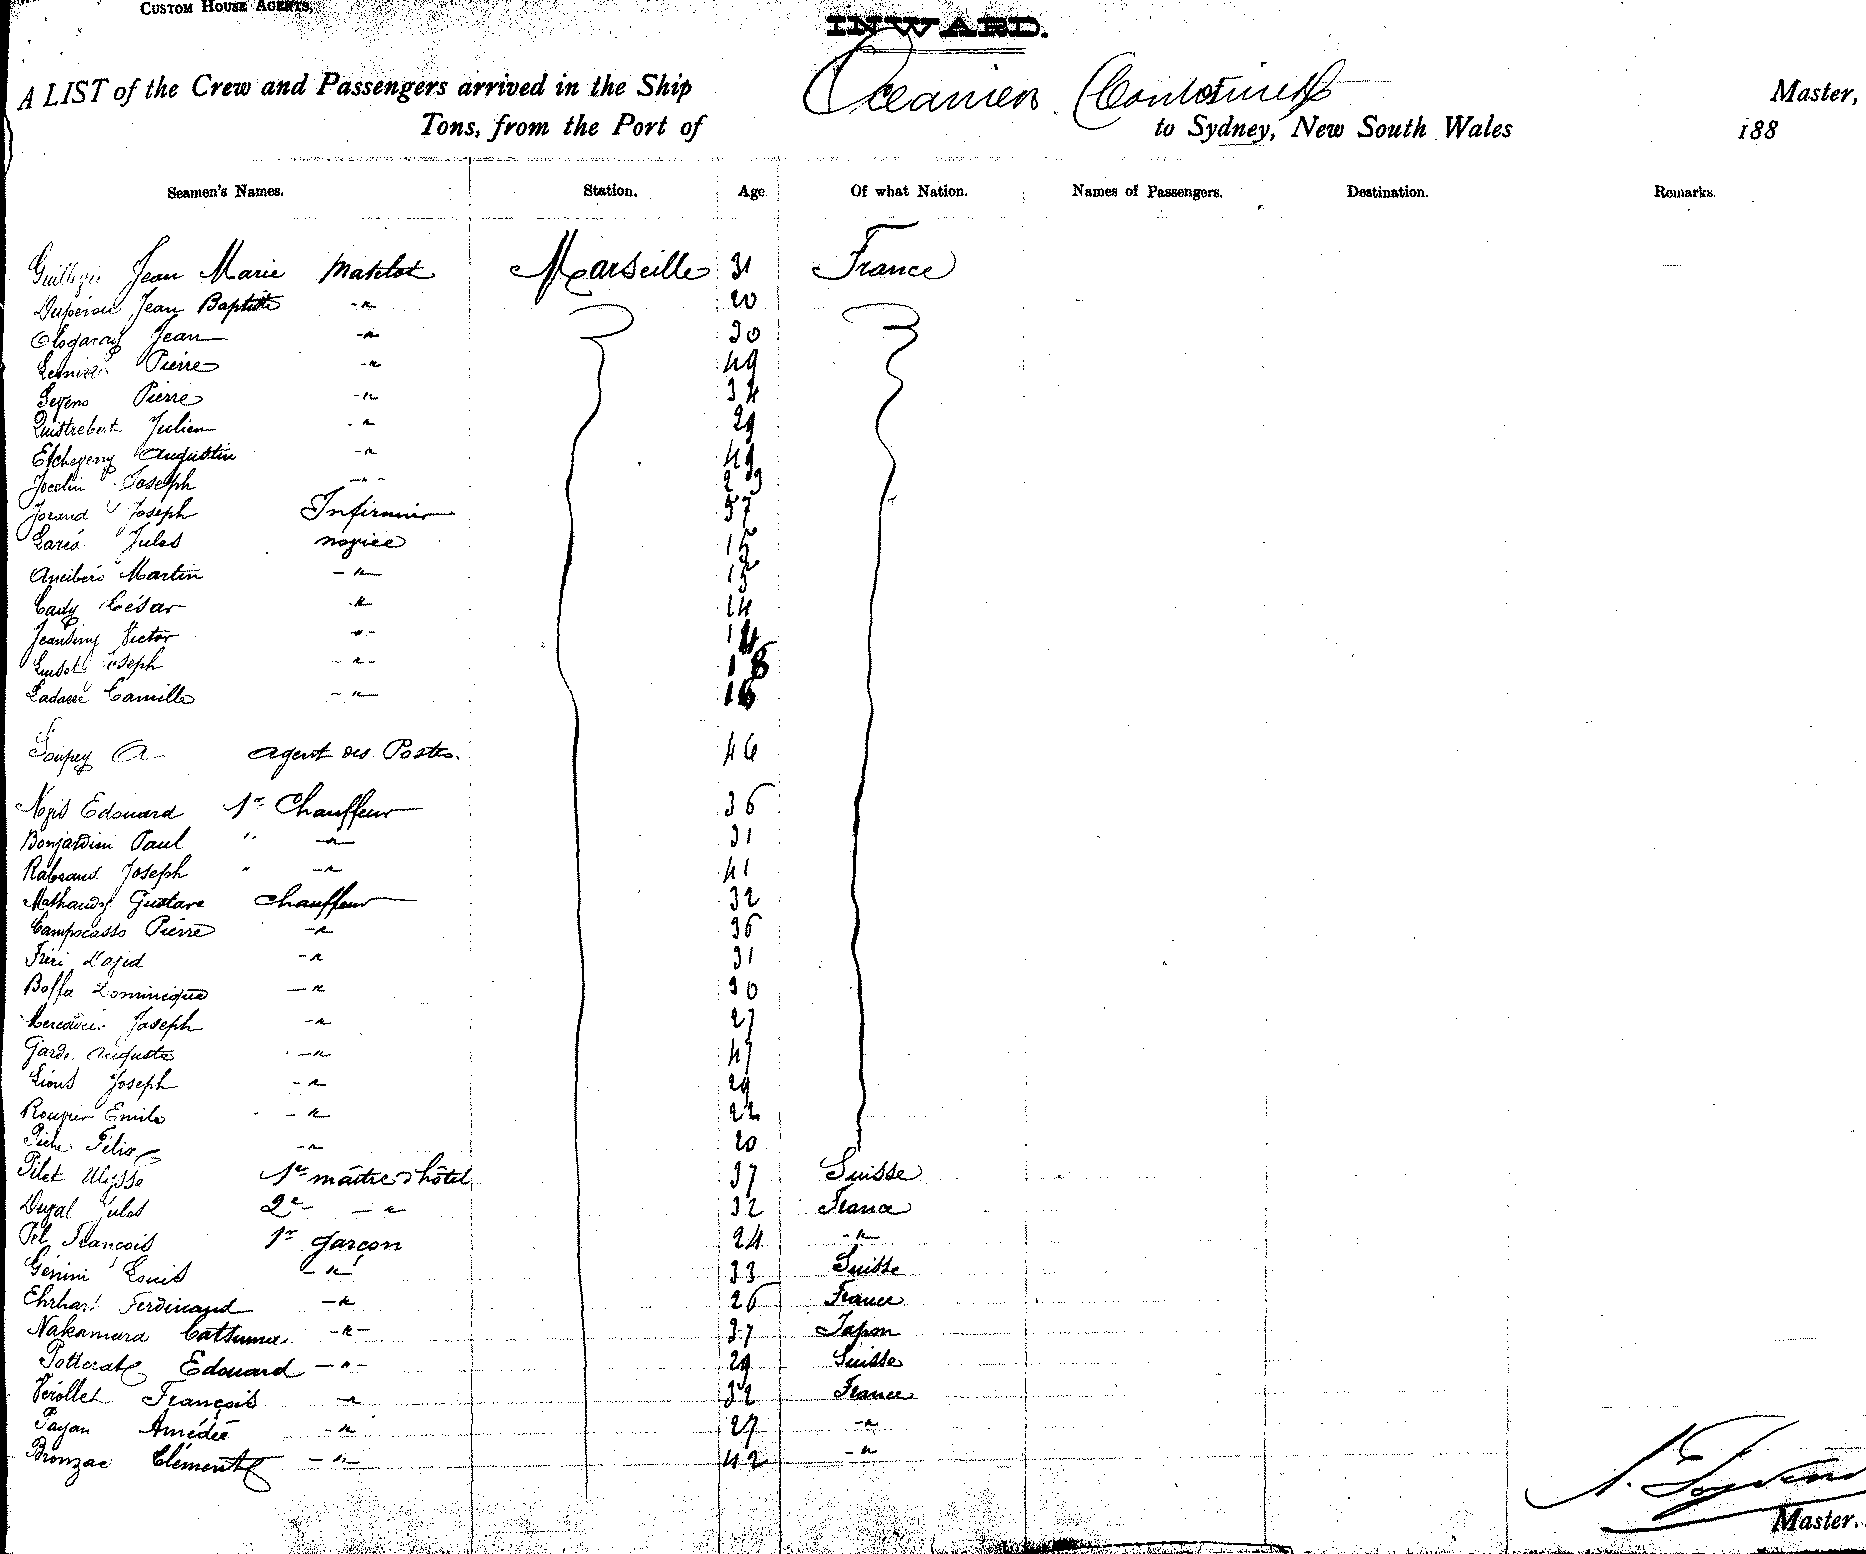 CUSTOM HOUSE AGENTS.
INWARD.
A LIST of the Crew and Passengers arrived in the Ship Oceanien (Continued) Master,
Tons, from the Port of to Sydney, New South Wales 188
Seamen's Names. Station. Age Of what Nation. Names of Passengers. Destination. Remarks.
Jean Marie Matelot Marseille 31 France
Jean Baptiste -"- 20
Jean -"- 30
Pierre -"- 49
Pierre -"- 34
Quistrebert Julien -"- 29
Etchegeny Augustin -"- 49
Jocelin Joseph -"- 23
Jorand Joseph Infirmier 57
Jules novice 15
Martin -"- 15
Cady César -"- 14
Victor -"- 14
Joseph -"- 18
Camille -"- 16
Soupey A agent des Postes. 46
Edouard 1er Chauffeur 36
Bonjardini Paul " -"- 31
Rabraud Joseph " -"- 41
Gustave Chauffeur 32
Campocasso Pierre -"- 36
31
Boffa Dominique -"- 30
Joseph -"- 27
Garde Auguste -"- 47
Lions Joseph -"- 29
Emile -"- 22
Félix -"- 20
Pilet Ulysse 1er maître d'hôtel 37 Suisse
Duval Jules 2e -"- 32 France
Pel François 1er garçon 24 -"-
Genini Louis -"- 33 Suisse
Ehrhart Ferdinand -"- 26 France
Nakamura Catsuma -"- 37 Japon
Potterat Edouard -"- 29 Suisse
Verollet François -"- 32 France
Payan Amédée -"- 27 -"-
Bronzac Clément -"- 42 -"-
Master.